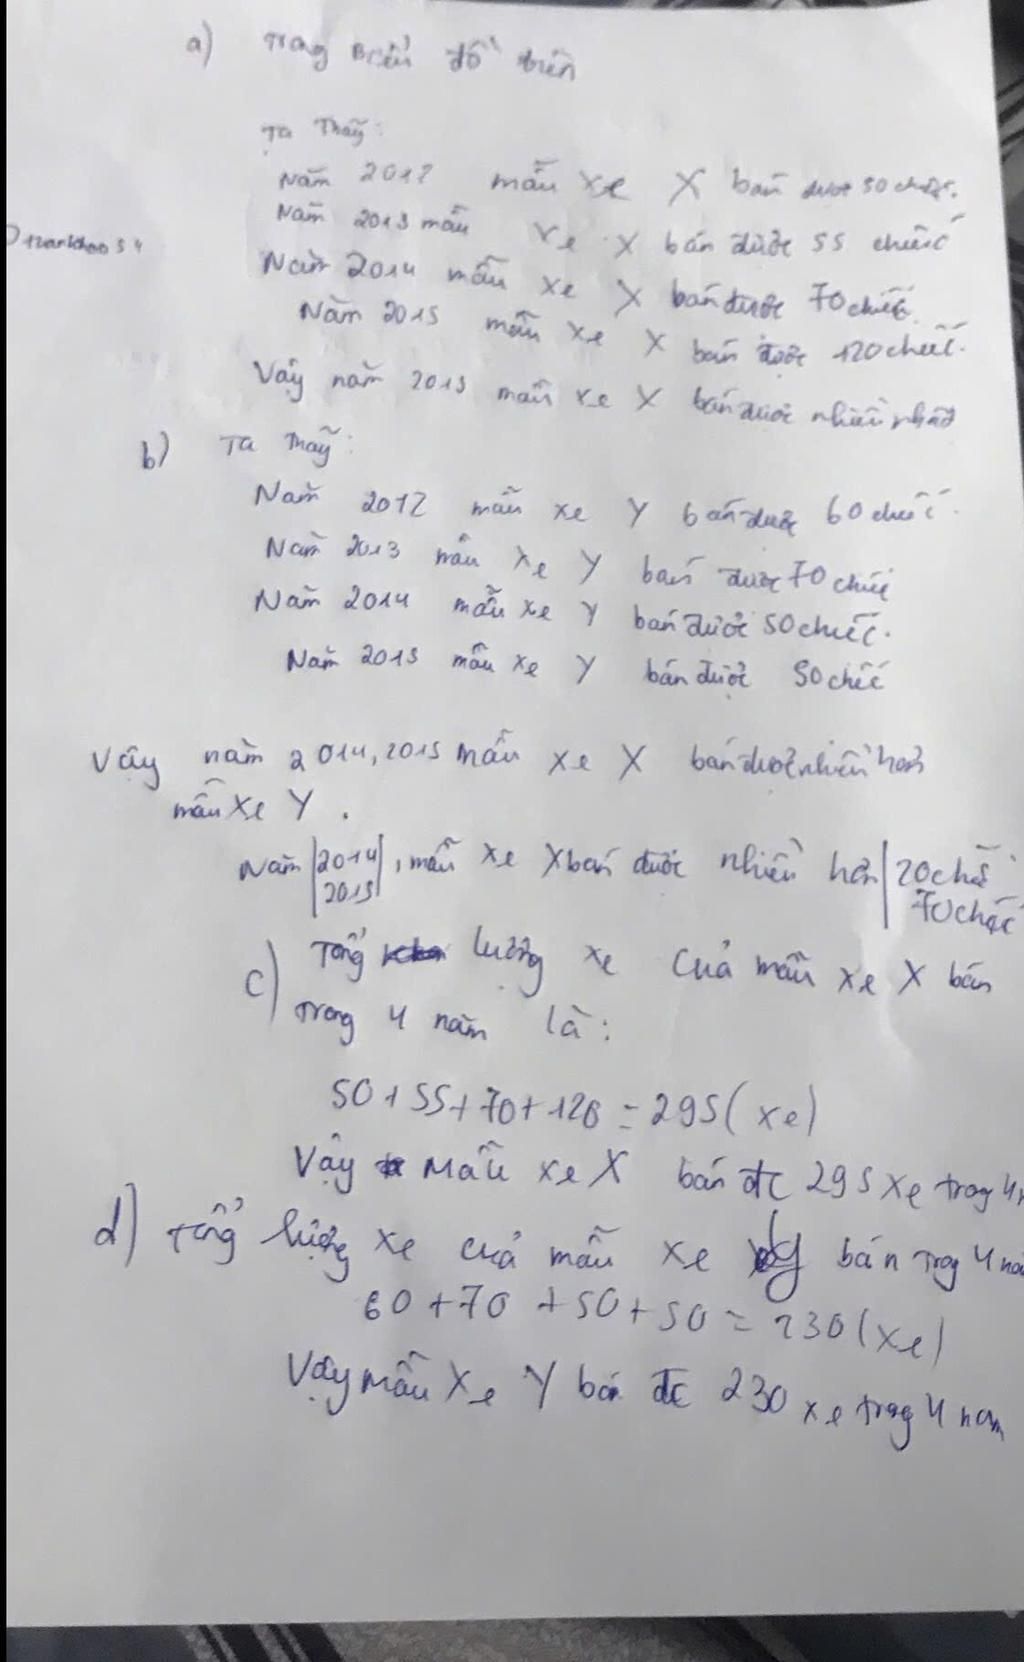 a) Trong biểu đồ trên
Ta Thấy:
Năm 2012 mẫu xe X bán được 50 chiếc.
Năm 2013 mẫu xe X bán được 55 chiếc
Năm 2014 mẫu xe X bán được 70 chiếc.
Năm 2015 mẫu xe X bán được 120 chiếc.
Vậy năm 2015 mẫu xe X bán được nhiều nhất
b) Ta thấy:
Năm 2012 mẫu xe Y bán được 60 chiếc.
Năm 2013 mẫu xe Y bán được 70 chiếc
Năm 2014 mẫu xe Y bán được 50 chiếc.
Năm 2015 mẫu xe Y bán được 50 chiếc
Vậy năm 2014, 2015 mẫu xe X bán được nhiều hơn
mẫu xe Y.
Năm |2014|, mẫu xe X bán được nhiều hơn |20 chiếc
2015 70 chiếc
c) Tổng lượng xe của mẫu xe X bán
trong 4 năm là:
50 + 55 + 70 + 120 = 295 (xe)
Vậy mẫu xe X bán đc 295 xe trong 4
d) Tổng lượng xe của mẫu xe Y bán trong 4 nă
60 + 70 + 50 + 50 = 230 (xe)
Vậy mẫu xe Y bán đc 230 xe trong 4 năm